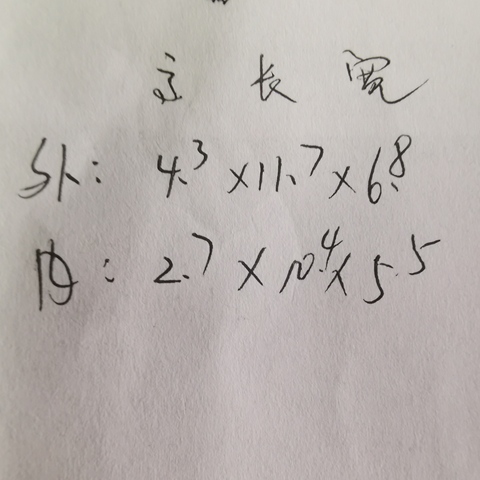 高 长 宽
外: 4.3×11.7×6.8
内: 2.7×10.4×5.5